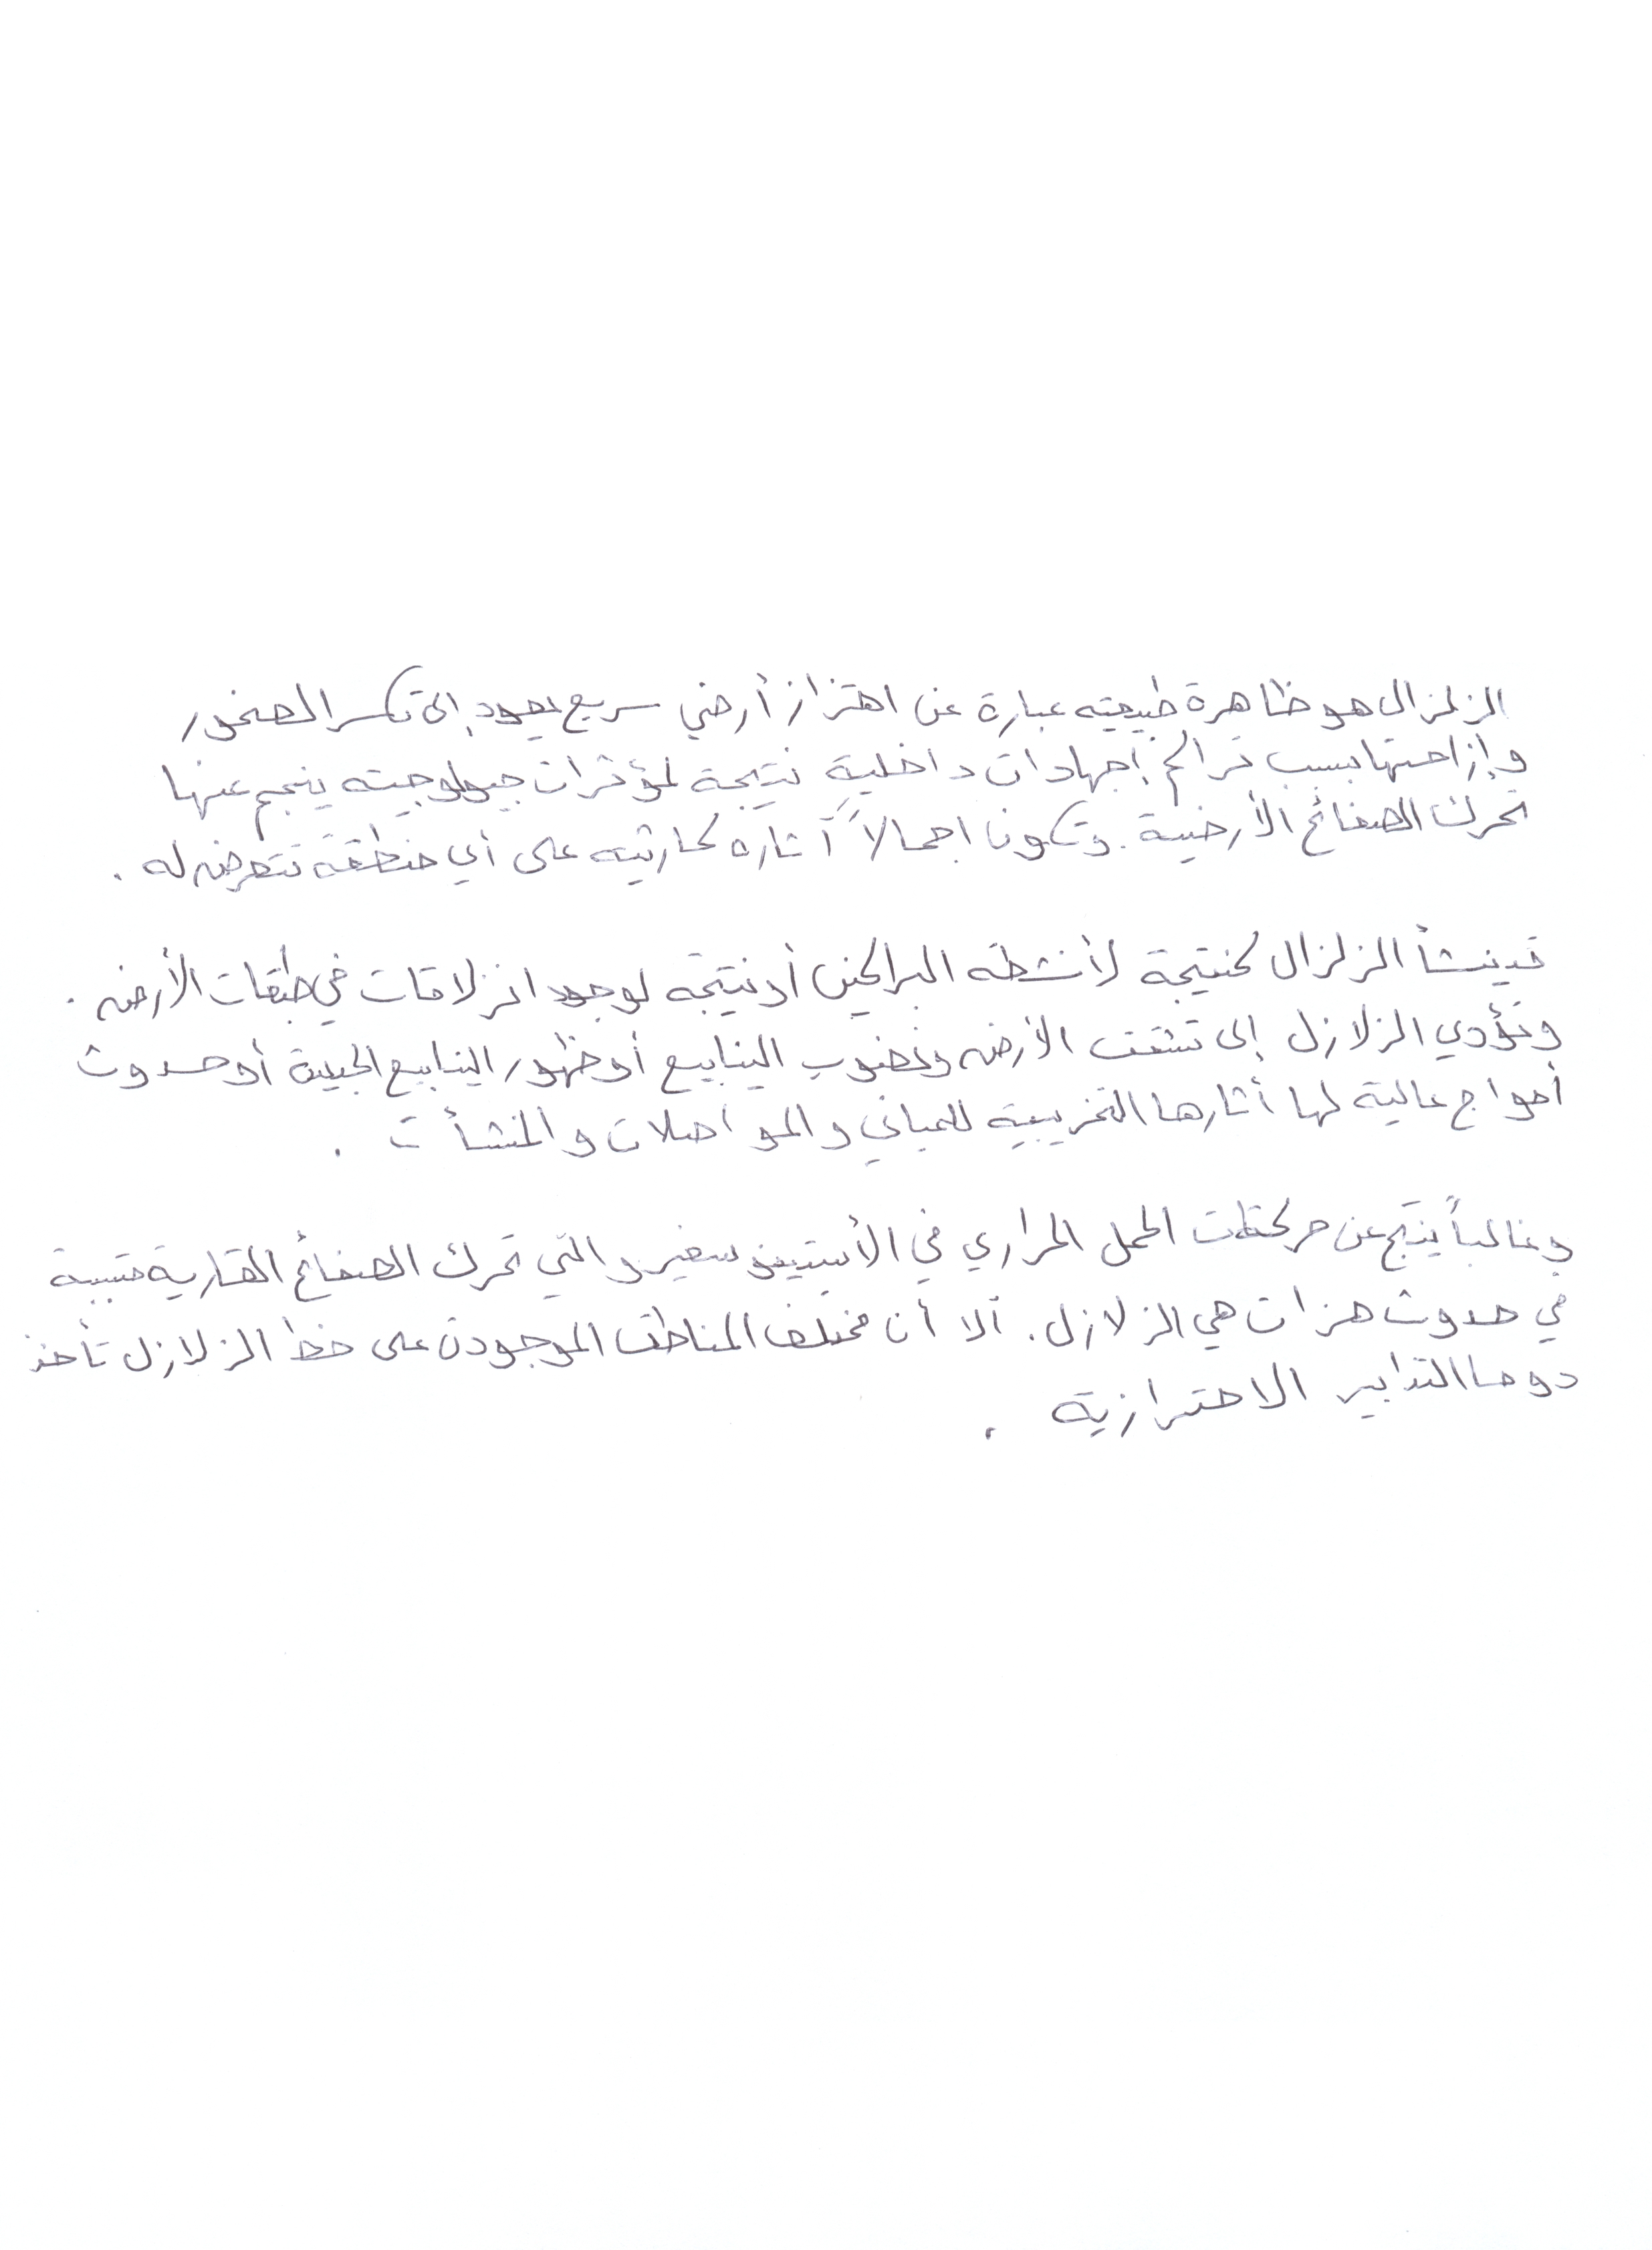 الزلزال هو ظاهرة طبيعيه عبارة عن اهتزاز أرضي سريع يعود إلى تكسر الصخور
وإزاحتها بسبب تراكم إجهادات داخلية نتيجة لمؤثرات جيولوجيته ينجم عنها
تحرك الصفائح الأرضية. وتكون اجمالاً آثاره كارثيه على أي منطقة تتعرض له .
قد ينشأ الزلزال كنتيجة لأنشطه البراكين أو نتيجه لوجود انزلاقات في طبقات الأرض .
وتؤدي الزلازل إلى تشقق الأرض ونضوب الينابيع أو ظهور الينابيع الجديدة أو حدوث
أمواج عالية لها أثارها التخريبية للمباني والمواصلات والمنشأت .
وغالباً ينتج عن حركات الحمل الحراري في الأستينوسفير والتي تحرك الصفائح القارية متسببة
في حدوث هزات هي الزلازل . ألا أن مختلف المناطق الموجودة على خط الزلازل تأخذ
دوما التدابير الاحترازية .